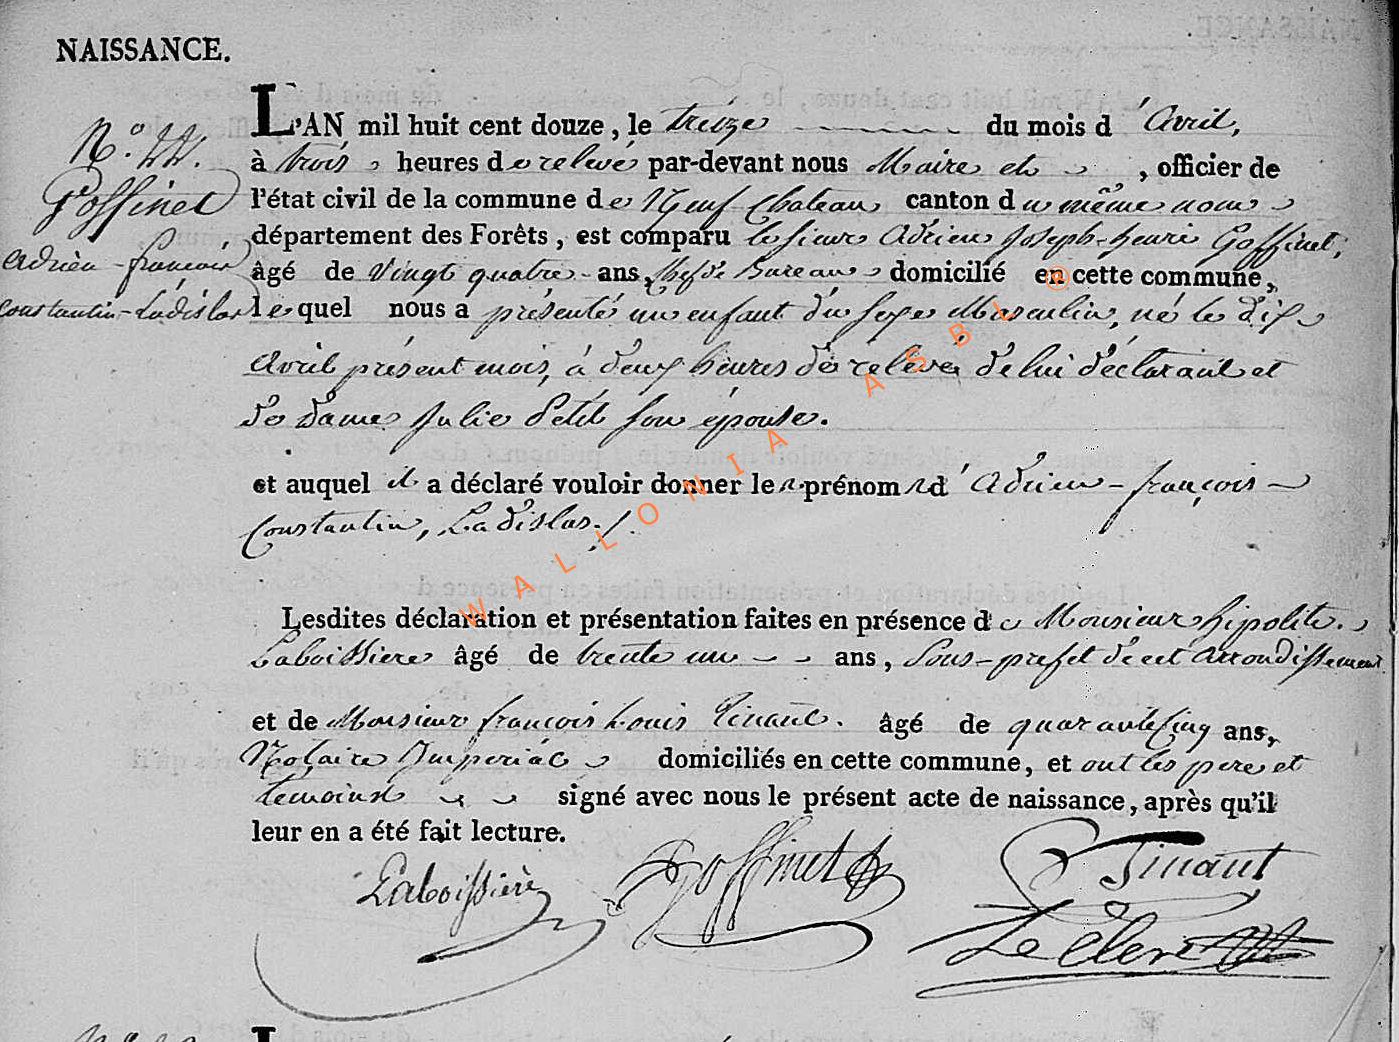 NAISSANCE.
N.° 44.
Goffinet
Adrien-françois
Constantin-Ladislas
L'AN mil huit cent douze, le treize du mois d'Avril,
à trois heures de relevé par-devant nous Maire et, officier de
l'état civil de la commune de Neuf Chateau canton du même nom
département des Forêts, est comparu le sieur Adrien Joseph-henri Goffinet,
âgé de vingt quatre ans, Chef de Bureau domicilié en cette commune,
lequel nous a présenté un enfant du sexe Masculin, né le dix
Avril présent mois, à deux heures de relevé de lui déclarant et
de dame Julie Petit son épouse.
et auquel il a déclaré vouloir donner les prénoms d'Adrien-françois-
Constantin, Ladislas./.
Lesdites déclaration et présentation faites en présence de Monsieur hipolite
Laboissiere âgé de trente un ans, Sous-prefet de cet arrondissement
et de Monsieur françois Louis Tinant. âgé de quarante cinq ans,
Notaire Imperial domiciliés en cette commune, et ont les pere et
temoins signé avec nous le présent acte de naissance, après qu'il
leur en a été fait lecture.
Laboissière Goffinet Tinant
Le Clerc
WALLONIA ASBL ®